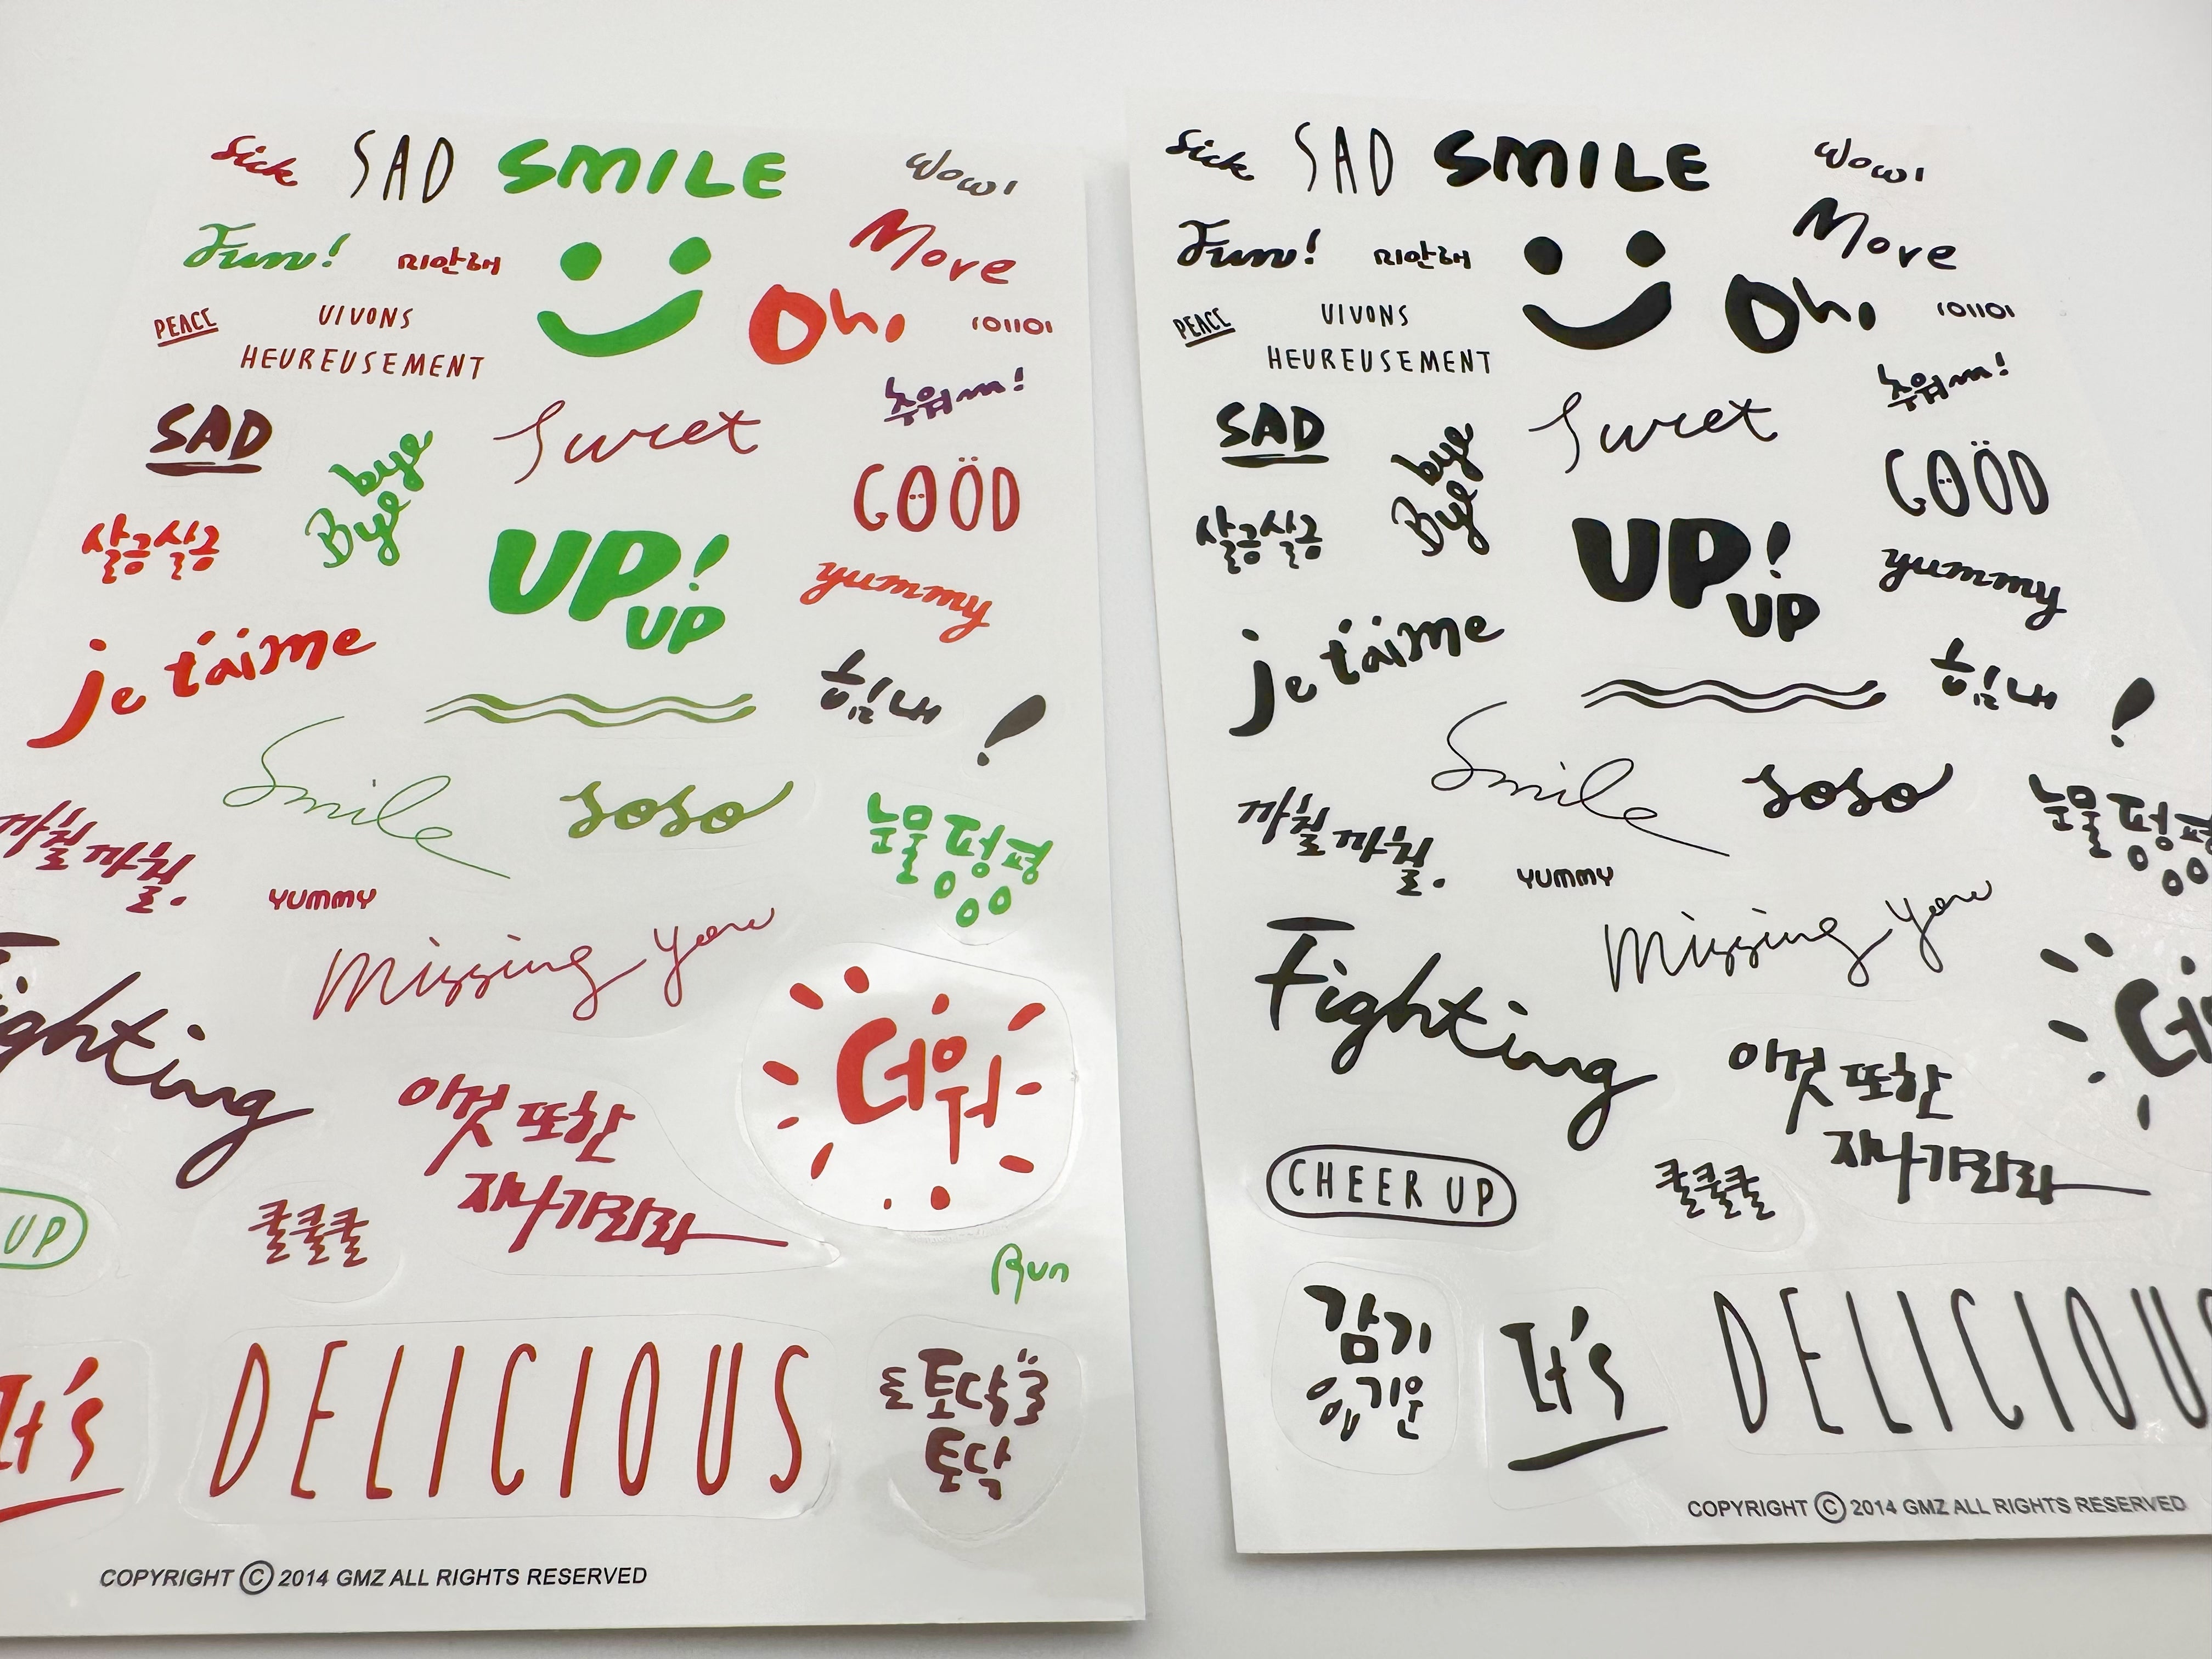 sick SAD SMILE wow!
Fun! 미안해 More
PEACE VIVONS Oh,
HEUREUSEMENT 101101
SAD bye Sweet 추워!
Bye GOÖD
살금살금 UP! yummy
UP
je t'aime 힘내 !
Smile soso 눈물 펑펑
까칠까칠.
YUMMY
Missing you
ighting 더워
이것 또한
지나가리라
UP 쿨쿨쿨
Run
It's DELICIOUS 토닥
토닥
COPYRIGHT © 2014 GMZ ALL RIGHTS RESERVED
sick SAD SMILE wow!
Fun! 미안해 More
PEACE VIVONS Oh,
HEUREUSEMENT 101101
SAD bye Sweet 추워!
Bye GOÖD
살금살금 UP! yummy
UP
je t'aime 힘내 !
Smile soso 눈물 펑펑
까칠까칠.
YUMMY
Missing you
Fighting 더
이것 또한
지나가리라
CHEER UP 쿨쿨쿨
감기 It's DELICIOUS
COPYRIGHT © 2014 GMZ ALL RIGHTS RESERVED